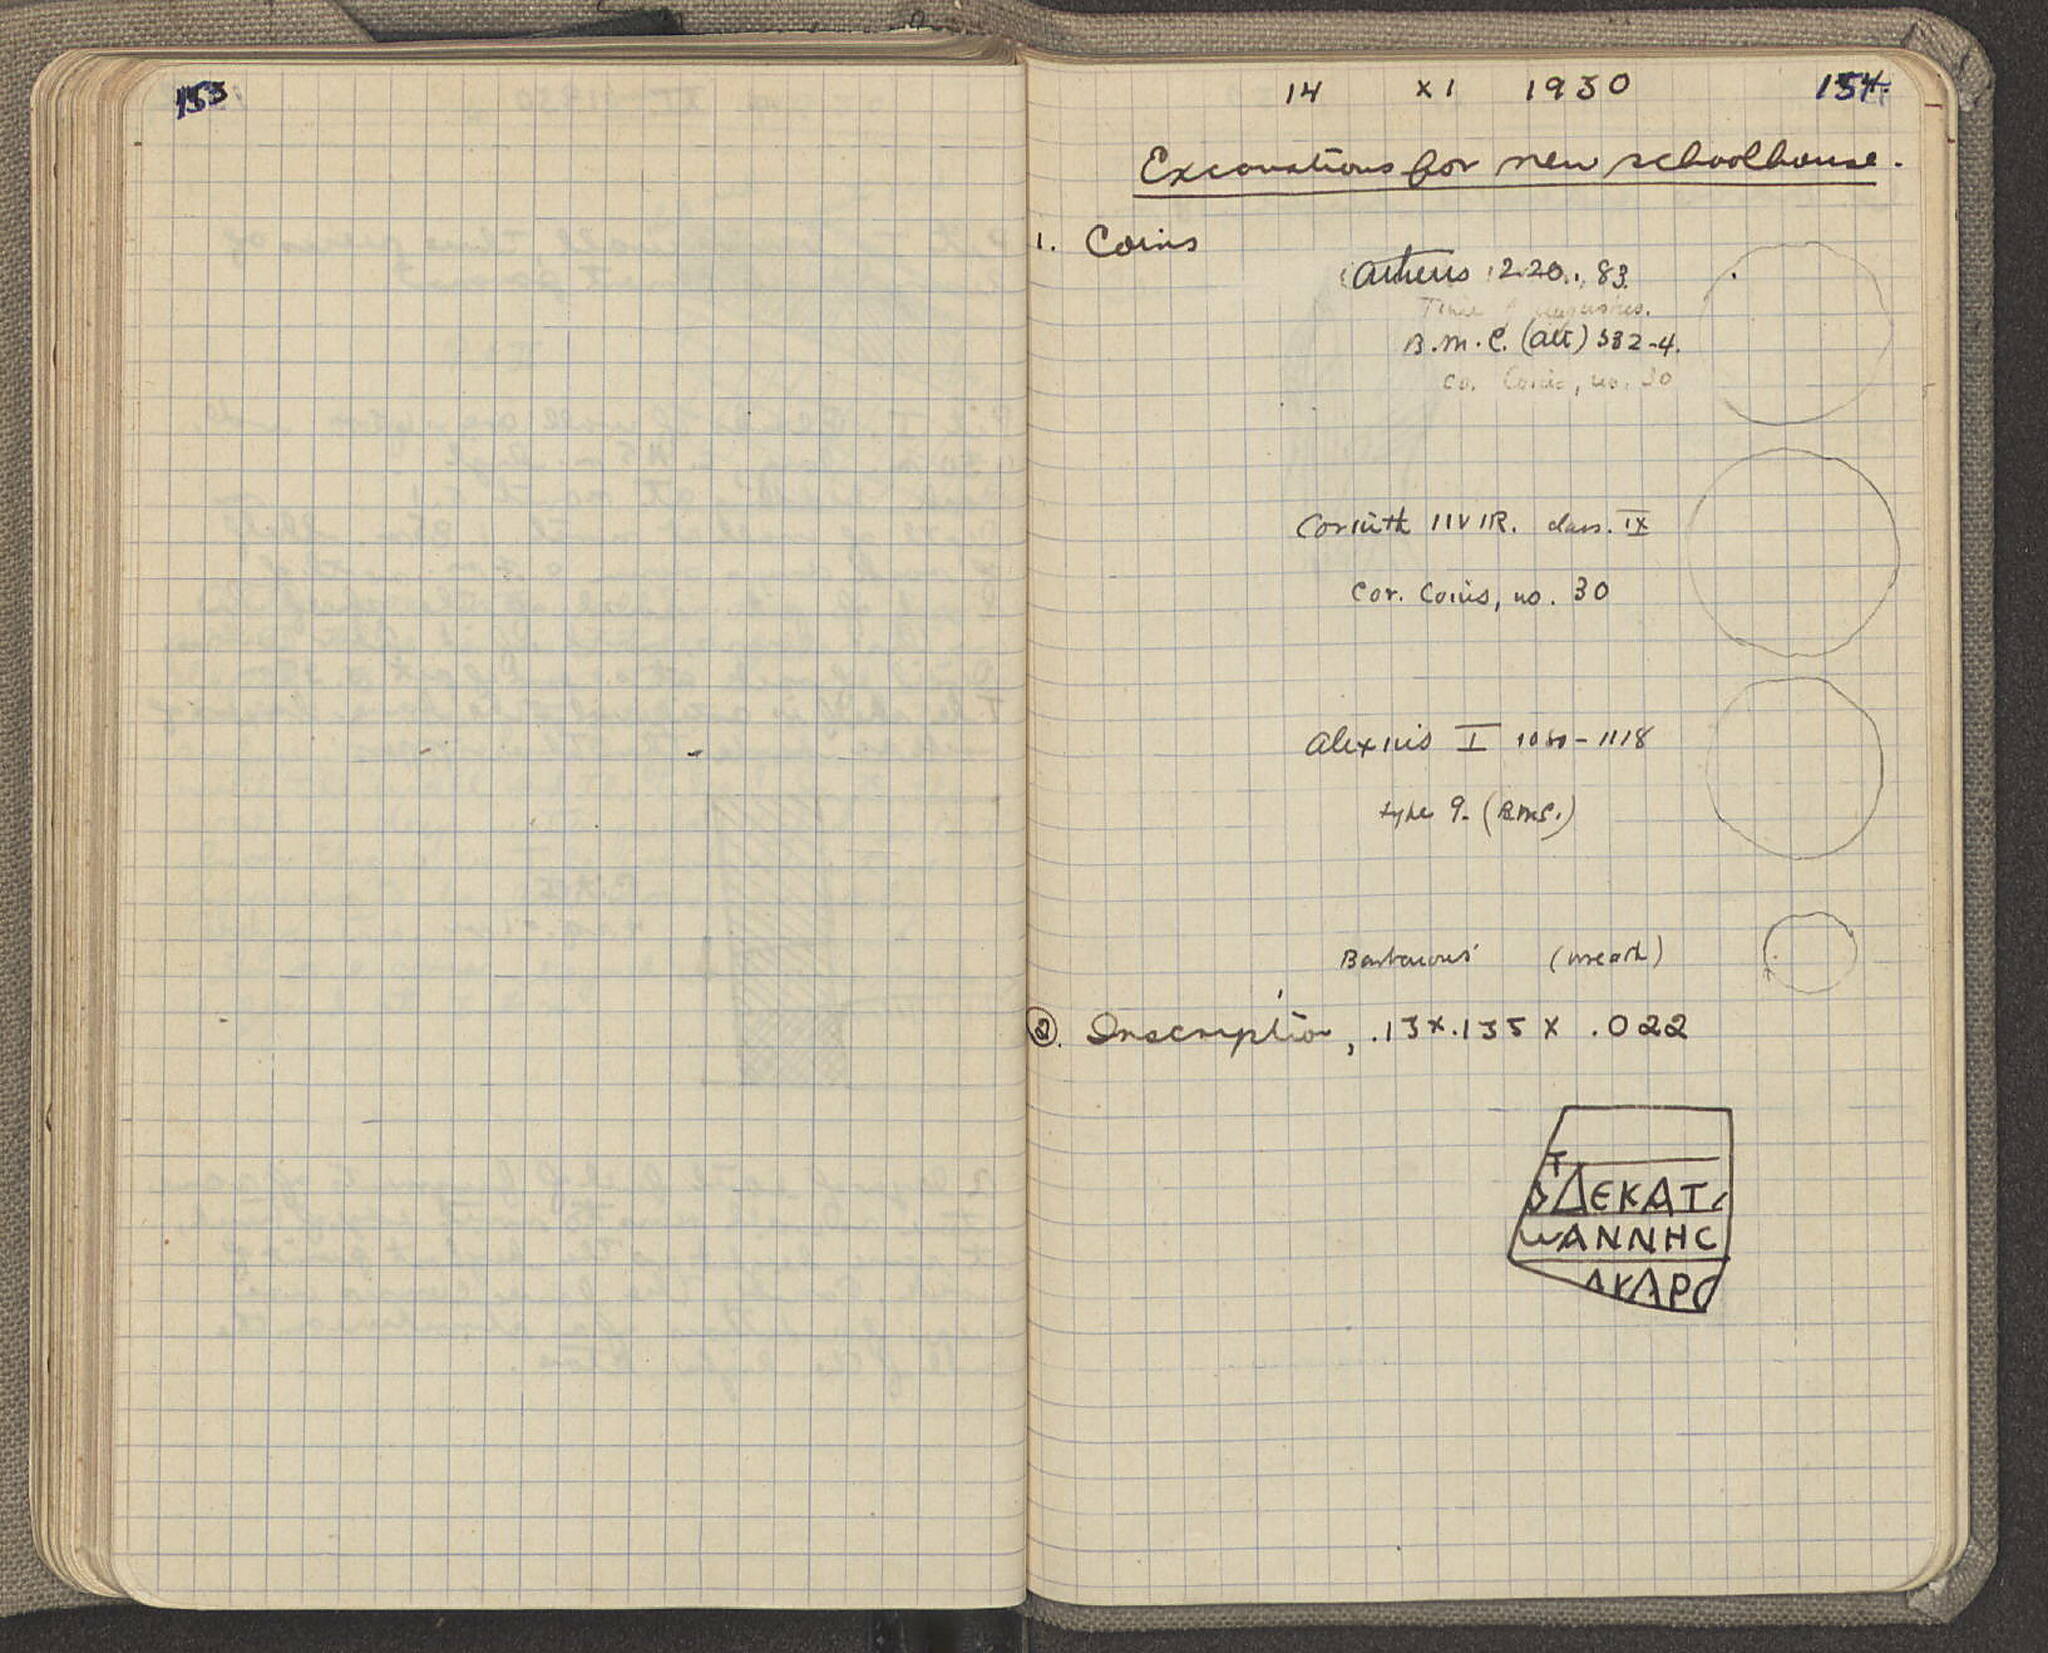 153
14 XI 1930 154.
Excavations for new schoolhouse.
1. Coins
Athens 220., 83.
Time of Augustus.
B.M.C. (Att) 582-4.
Co. Coins, no. 30
Corinth IIVIR. class. IX
Cor. Coins, no. 30
Alexius I 1081-1118
type 9. (BMC.)
Barbarous (wreath)
2. Inscription, .13 x .135 x .022
Τ
ΔΕΚΑΤ
ωΑΝΝΗC
ΑΚΑΡΟ